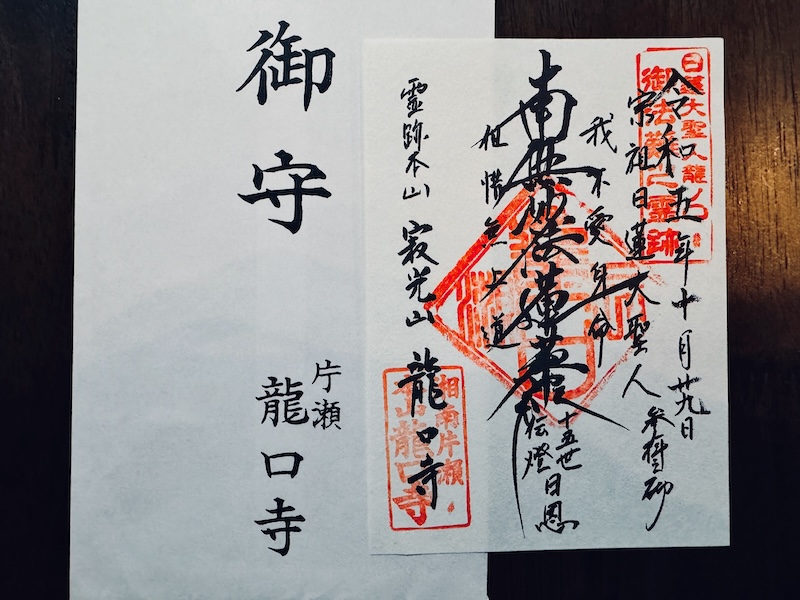 日蓮大聖人龍ノ口
御法難之霊跡
令和五年十月廿九日
宗祖日蓮大聖人
我不愛身命
南無妙法蓮華経
但惜無上道
十五世
伝燈日恩
霊跡本山 寂光山 龍口寺
相南片瀬
本山龍口寺
御守
片瀬
龍口寺